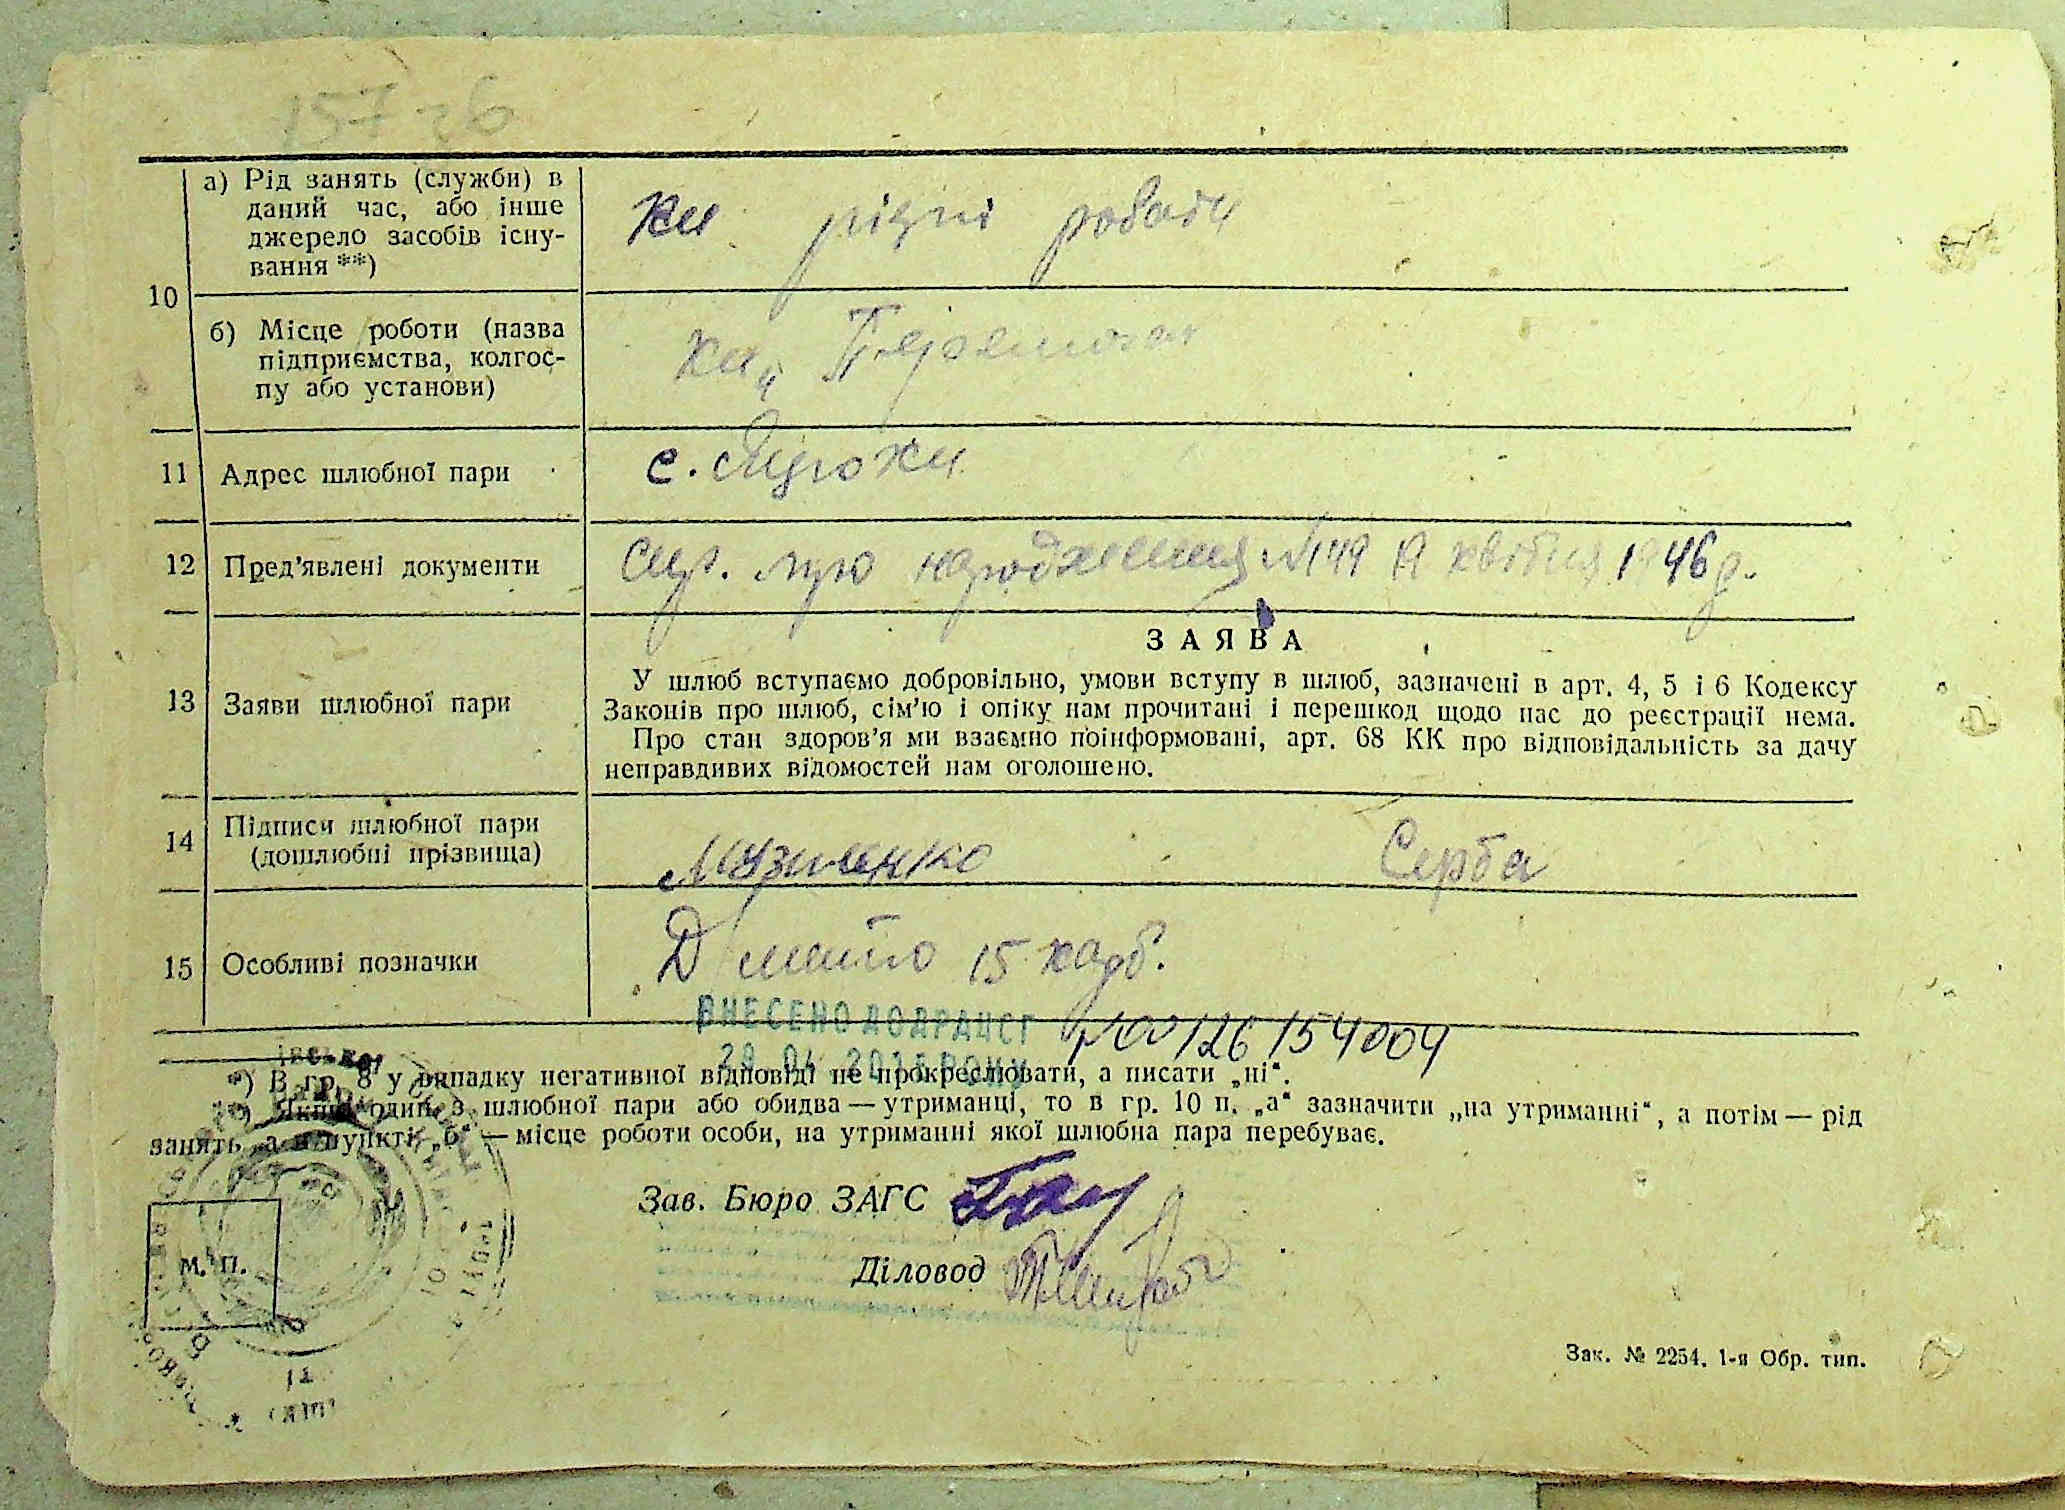 157 зб
10
а) Рід занять (служби) в
даний час, або інше
джерело засобів існу-
вання **)
різні роботи
б) Місце роботи (назва
підприємства, колгос-
пу або установи)
11 Адрес шлюбної пари
с.
12 Пред'явлені документи
про народження №149 квітня 1946 р.
13 Заяви шлюбної пари
ЗАЯВА
У шлюб вступаємо добровільно, умови вступу в шлюб, зазначені в арт. 4, 5 і 6 Кодексу
Законів про шлюб, сім'ю і опіку нам прочитані і перешкод щодо нас до реєстрації нема.
Про стан здоров'я ми взаємно поінформовані, арт. 68 КК про відповідальність за дачу
неправдивих відомостей нам оголошено.
14 Підписи шлюбної пари
(дошлюбні прізвища)
Музиченко Серба
15 Особливі позначки
Д мито 15 карб.
ВНЕСЕНО ДО ДРАЦСГ
00126154004
*) В гр. 8 у випадку негативної відповіді не прокреслювати, а писати „ні“.
**) Якщо один з шлюбної пари або обидва — утриманці, то в гр. 10 п. „а“ зазначити „на утриманні“, а потім — рід
занять, а в пункті „б“ — місце роботи особи, на утриманні якої шлюбна пара перебуває.
Зав. Бюро ЗАГС
М. П.
Діловод
Зак. № 2254. 1-я Обр. тип.